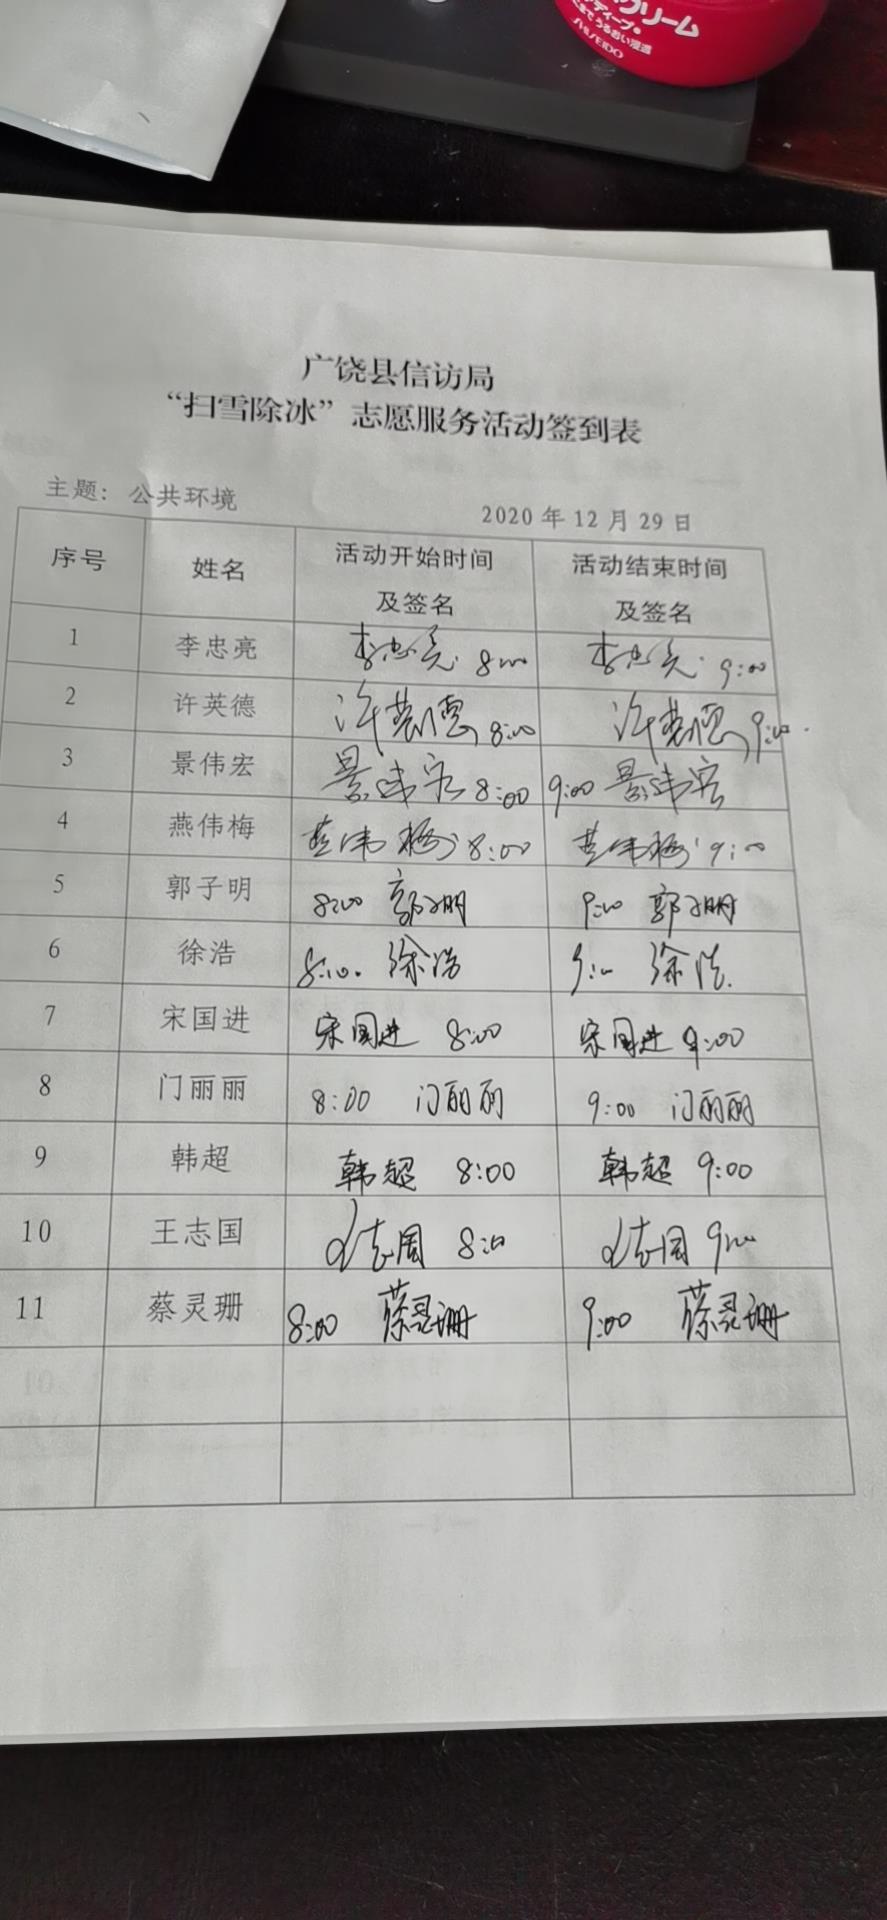 クリーム
SHISEIDO
广饶县信访局
“扫雪除冰”志愿服务活动签到表
主题：公共环境
2020 年 12 月 29 日
序号 姓名 活动开始时间及签名 活动结束时间及签名
1 李忠亮 李忠亮 8:00 李忠亮 9:00
2 许英德 许英德 8:00 许英德 9:00
3 景伟宏 景伟宏 8:00 9:00 景伟宏
4 燕伟梅 燕伟梅 8:00 燕伟梅 9:00
5 郭子明 8:00 郭子明 9:00 郭子明
6 徐浩 8:00 徐浩 9:00 徐浩
7 宋国进 宋国进 8:00 宋国进 9:00
8 门丽丽 8:00 门丽丽 9:00 门丽丽
9 韩超 韩超 8:00 韩超 9:00
10 王志国 王志国 8:00 王志国 9:00
11 蔡灵珊 8:00 蔡灵珊 9:00 蔡灵珊